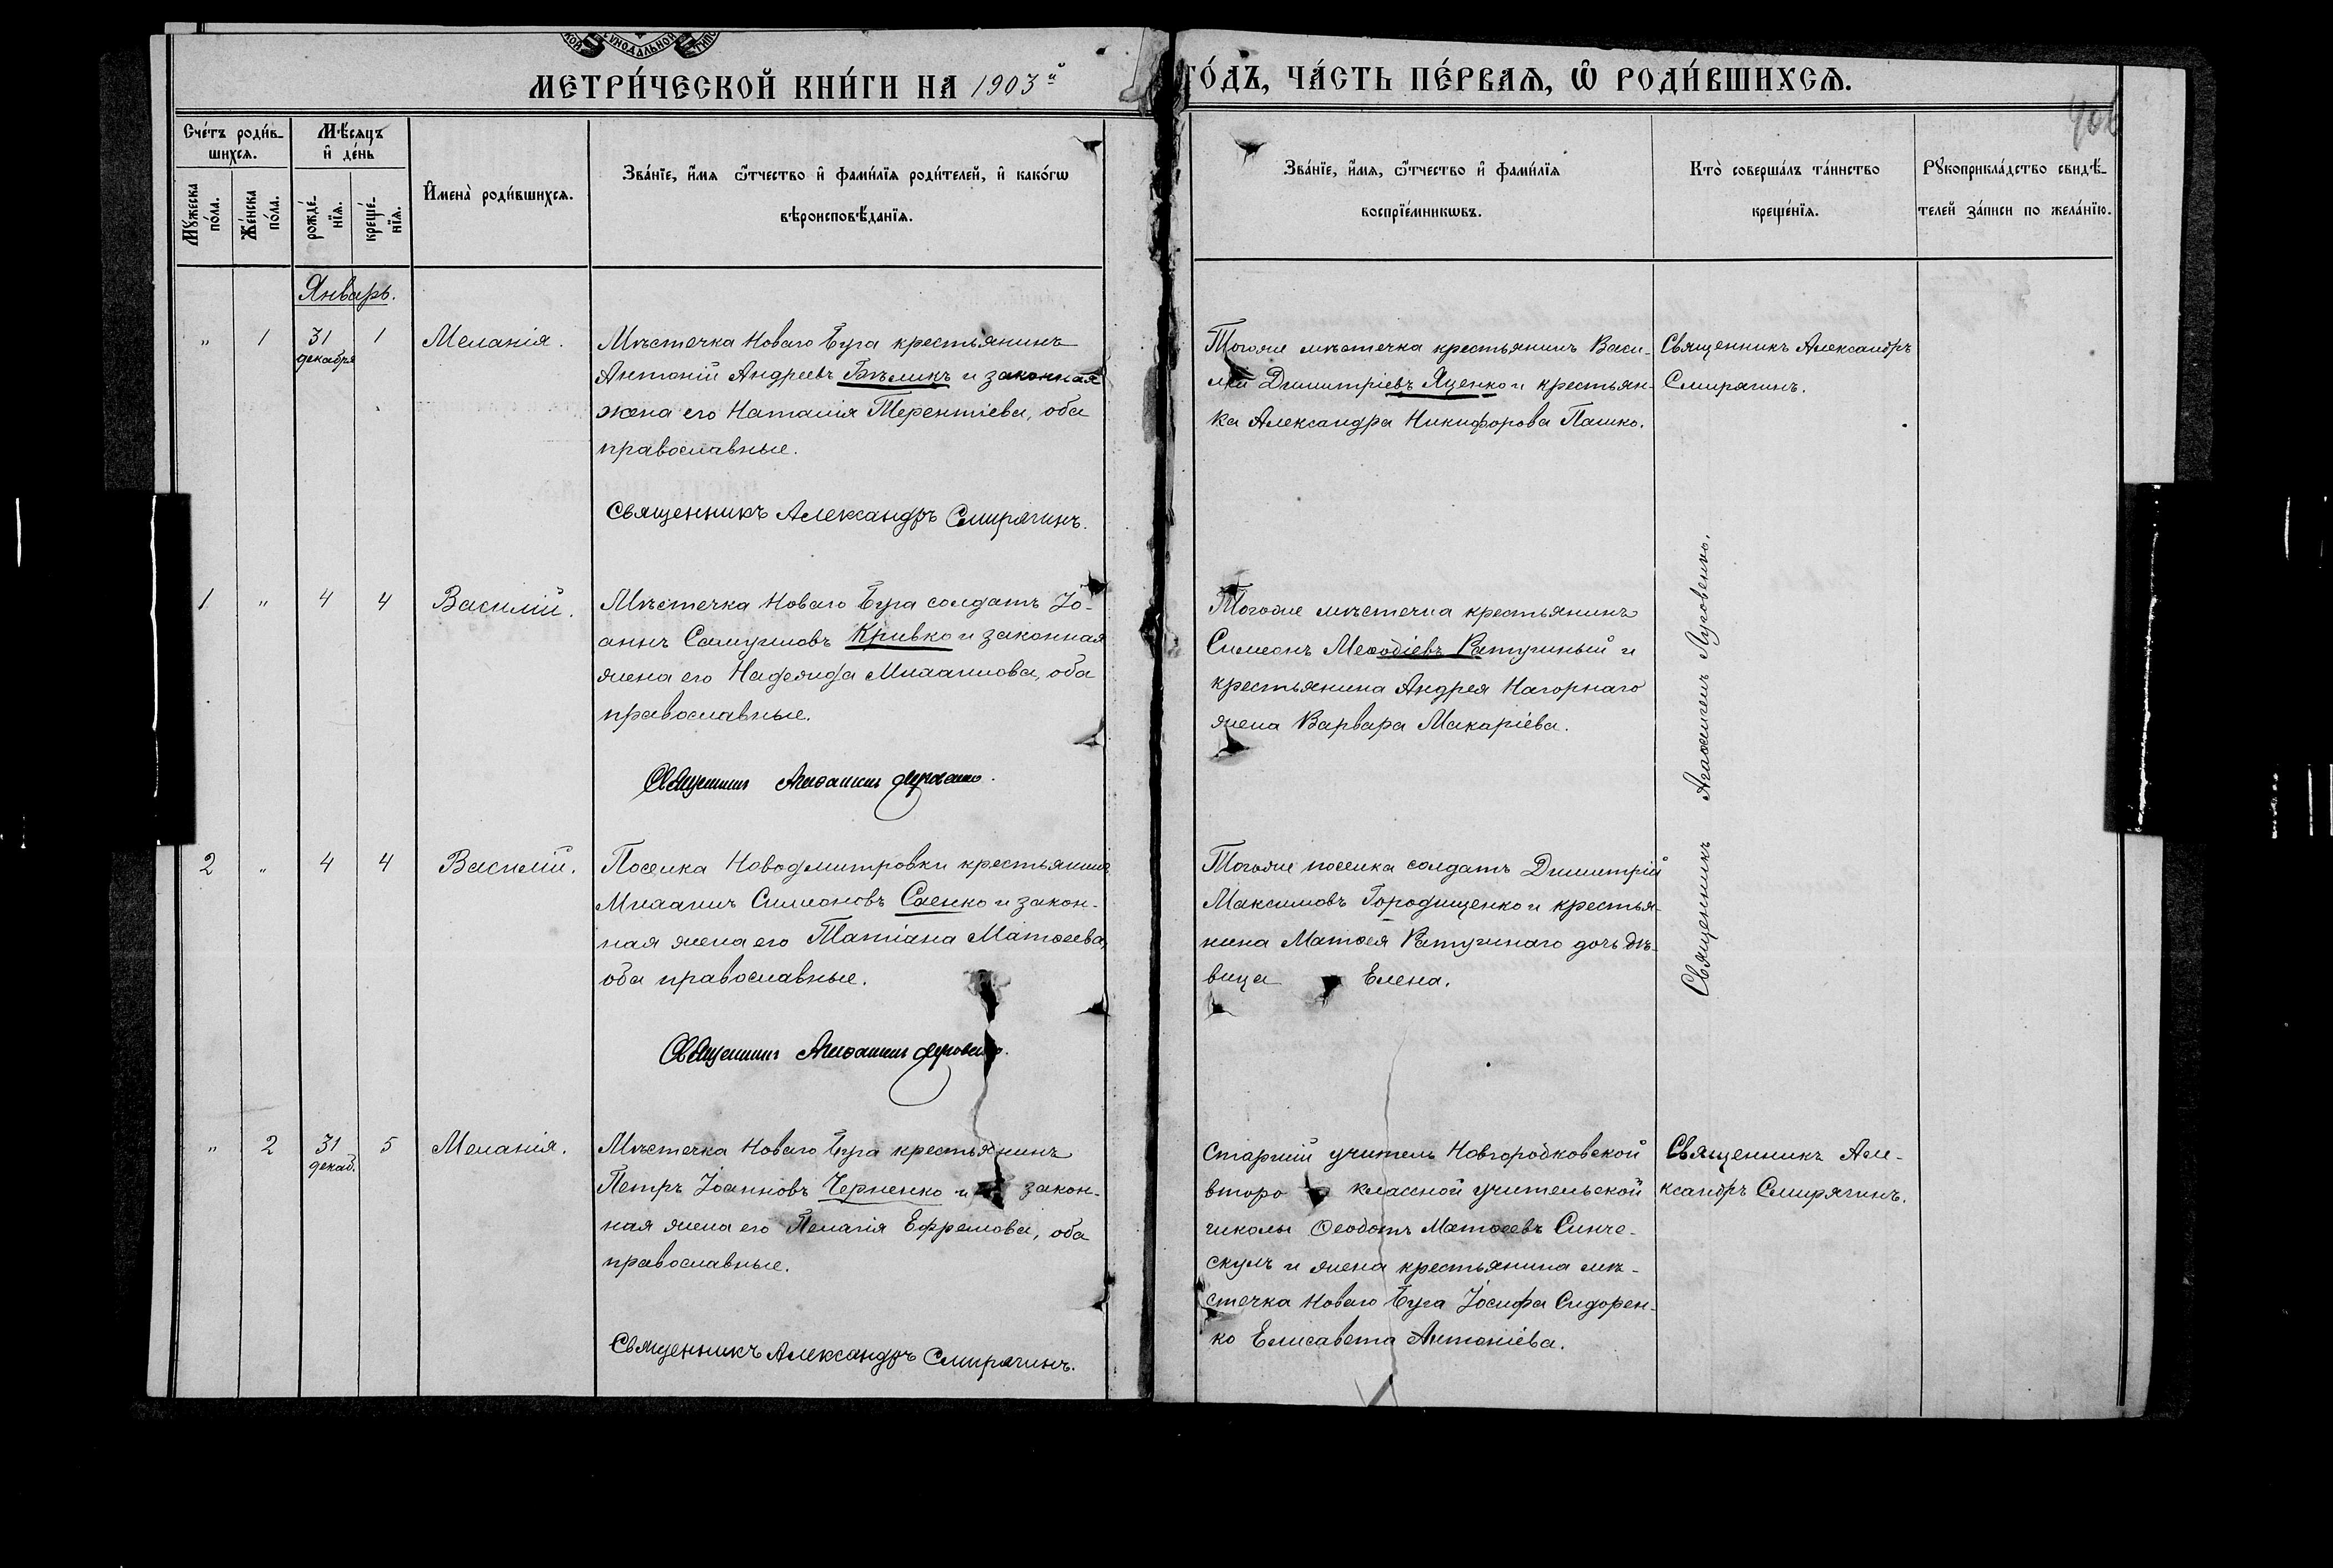 МЕТРИ́ЧЕСКОЙ КНИ́ГИ НА 1903й
ГО́ДЪ, ЧА́СТЬ ПЕ́РВАѦ, Ѡ РОДИ́ВШИХСѦ.
406
Сче́тъ роди́в-
шихсѧ.
Мѣ́сѧцъ
и де́нь
Мꙋ́жеска
по́ла.
Же́нска
по́ла.
рожде́-
нїѧ.
креще́-
нїѧ.
И҆мена̀ роди́вшихсѧ.
Зва́нїе, и҆́мѧ ѻ҆́тчество и҆ фами́лїѧ роди́телей, и҆ како́гѡ
вѣроисповѣ́данїѧ.
Зва́нїе, и҆́мѧ, ѻ҆́тчество и҆ фами́лїѧ
воспрїе́мникѡвъ.
Кто̀ соверша́лъ та́инство
креще́нїѧ.
Рꙋкоприкла́дство свидѣ́-
телей за́писи по жела́нїю.
Январь.
" 1 31 декабря 1 Меланія.
Мѣстечка Новаго Буга крестьянинъ
Антоній Андреевъ Бѣликъ и законная
жена его Наталія Терентіева, оба
православные.
Священникъ Александръ Смирягинъ.
Тогоже мѣстечка крестьянинъ Васи-
лій Димитріевъ Яценко и крестьян-
ка Александра Никифорова Пашко.
Священникъ Александръ
Смирягинъ.
1 " 4 4 Василій.
Мѣстечка Новаго Буга солдатъ Іо-
аннъ Самуиловъ Кривко и законная
жена его Надежда Михаилова, оба
православные.
Священникъ Агаѳангелъ Луговенко.
Тогоже мѣстечка крестьянинъ
Симеонъ Меѳодіевъ Ратушный и
крестьянина Андрея Нагорнаго
жена Варвара Макаріева.
Священникъ Агаѳангелъ Луговенко.
2 " 4 4 Василій.
Поселка Новодмитровки крестьянинъ
Михаилъ Симеоновъ Саенко и закон-
ная жена его Татіана Матѳеева,
оба православные.
Священникъ Агаѳангелъ Луговенко.
Тогоже поселка солдатъ Димитрій
Максимовъ Городищенко и крестья-
нина Матѳея Ратушнаго дочь дѣ-
вица Елена.
" 2 31 декаб. 5 Меланія.
Мѣстечка Новаго Буга крестьянинъ
Петръ Іоанновъ Черненко и закон-
ная жена его Пелагія Ефремова, оба
православные.
Священникъ Александръ Смирягинъ.
Старшій учитель Новгородковской
второ классной учительской
школы Ѳеодотъ Матѳеевъ Синче-
скулъ и жена крестьянина мѣ-
стечка Новаго Буга Іосифа Сидорен-
ко Елисавета Антоніева.
Священникъ Але-
ксандръ Смирягинъ.